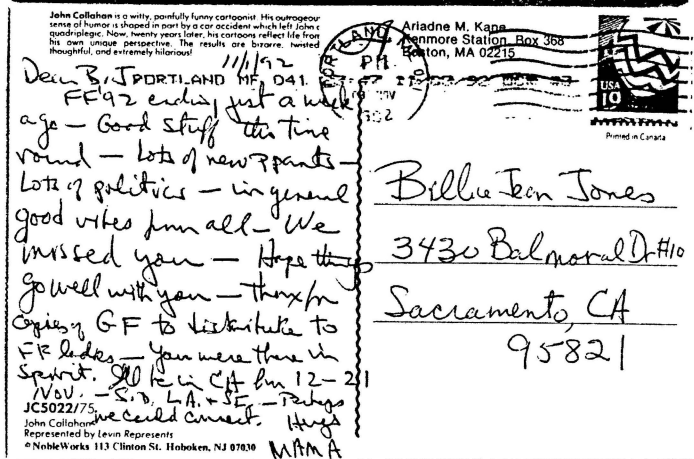 John Callahan is a witty, painfully funny cartoonist. His outrageou
sense of humor is shaped in part by a car accident which left John c
quadriplegic. Now, twenty years later, his cartoons reflect life from
his own unique perspective. The results are bizarre, twisted
thoughtful, and extremely hilarious!
11/1/92
Dear B.J.
FF'92 ending just a week
ago — Good Stuff this time
round — Lots of new ppants —
Lots of politics — in general
good vibes from all — We
missed you — Hope things
go well with you — Thanx for
Copies of GF to distribute to
FF ladies — You were there in
Spirit. I'll be in CA fm 12-21
Nov. — S.D. L.A. + SF. — Perhaps
we could connect. Hugs
MAMA
JC5022/75
John Callahan
Represented by Levin Represents
© NobleWorks 113 Clinton St. Hoboken, NJ 07030
Ariadne M. Kane
Kenmore Station, Box 368
Boston, MA 02215
PORTLAND ME 041
PORTLAND
PM
NOV
USA
19
Printed in Canada
Billie Jean Jones
3430 Balmoral Dr #10
Sacramento, CA
95821